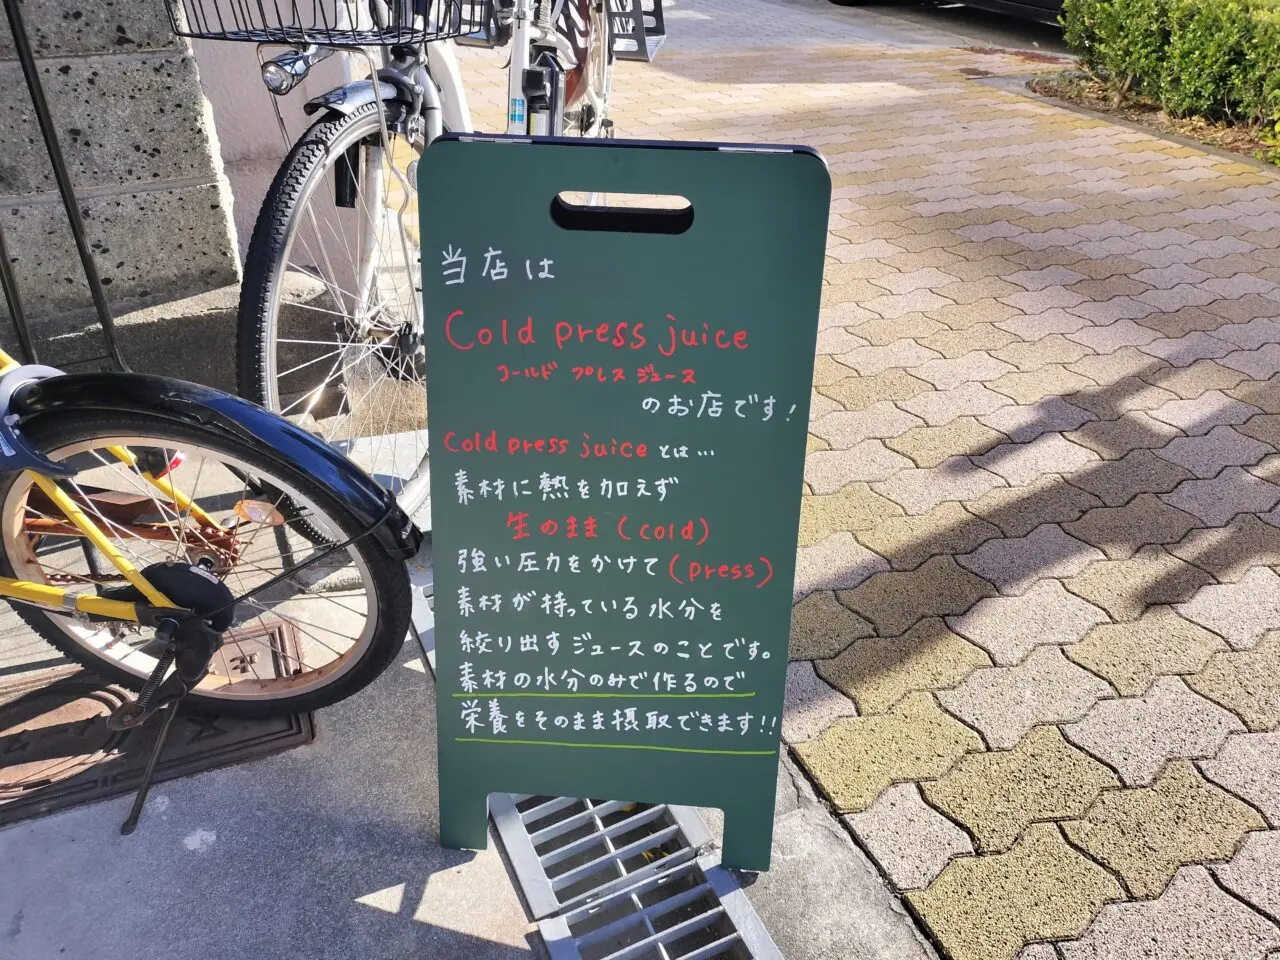 当店は
Cold press juice
コールド プレス ジュース
のお店です!
Cold press juice とは…
素材に熱を加えず
生のまま(cold)
強い圧力をかけて(press)
素材が持っている水分を
絞り出すジュースのことです。
素材の水分のみで作るので
栄養をそのまま摂取できます!!